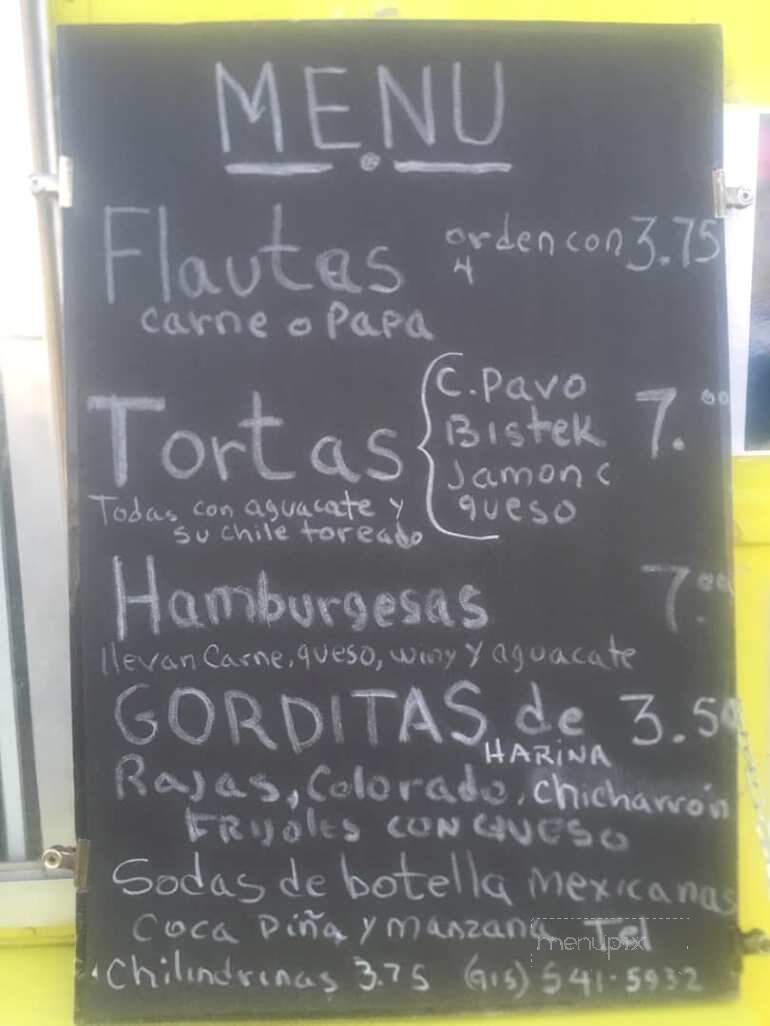 MENU
Flautas orden con 3.75
4
carne o Papa
Tortas
C. Pavo
Bistek 7.00
Jamon c
queso
Todas con aguacate y
su chile toreado
Hamburgesas 7.00
llevan Carne, queso, winy y aguacate
GORDITAS de 3.50
HARINA
Rajas, Colorado, chicharrón
FRIJOLES CON QUESO
Sodas de botella mexicanas
Coca Piña y manzana Tel
menupix
Chilindrinas 3.75 (915) 541-5932